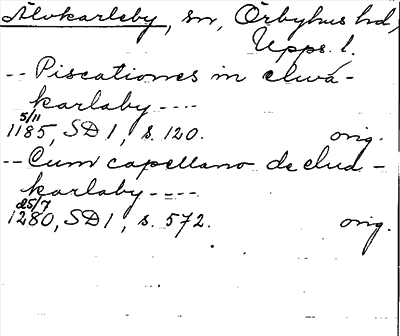 Älvkarleby, sn, Örbyhus hd,
Upps. l.
-- Piscationes in elwa-
karlaby ----
5/11
1185, SD 1, s. 120. orig.
-- Cum capellano de elua-
karlaby ----
25/7
1280, SD 1, s. 572. orig.